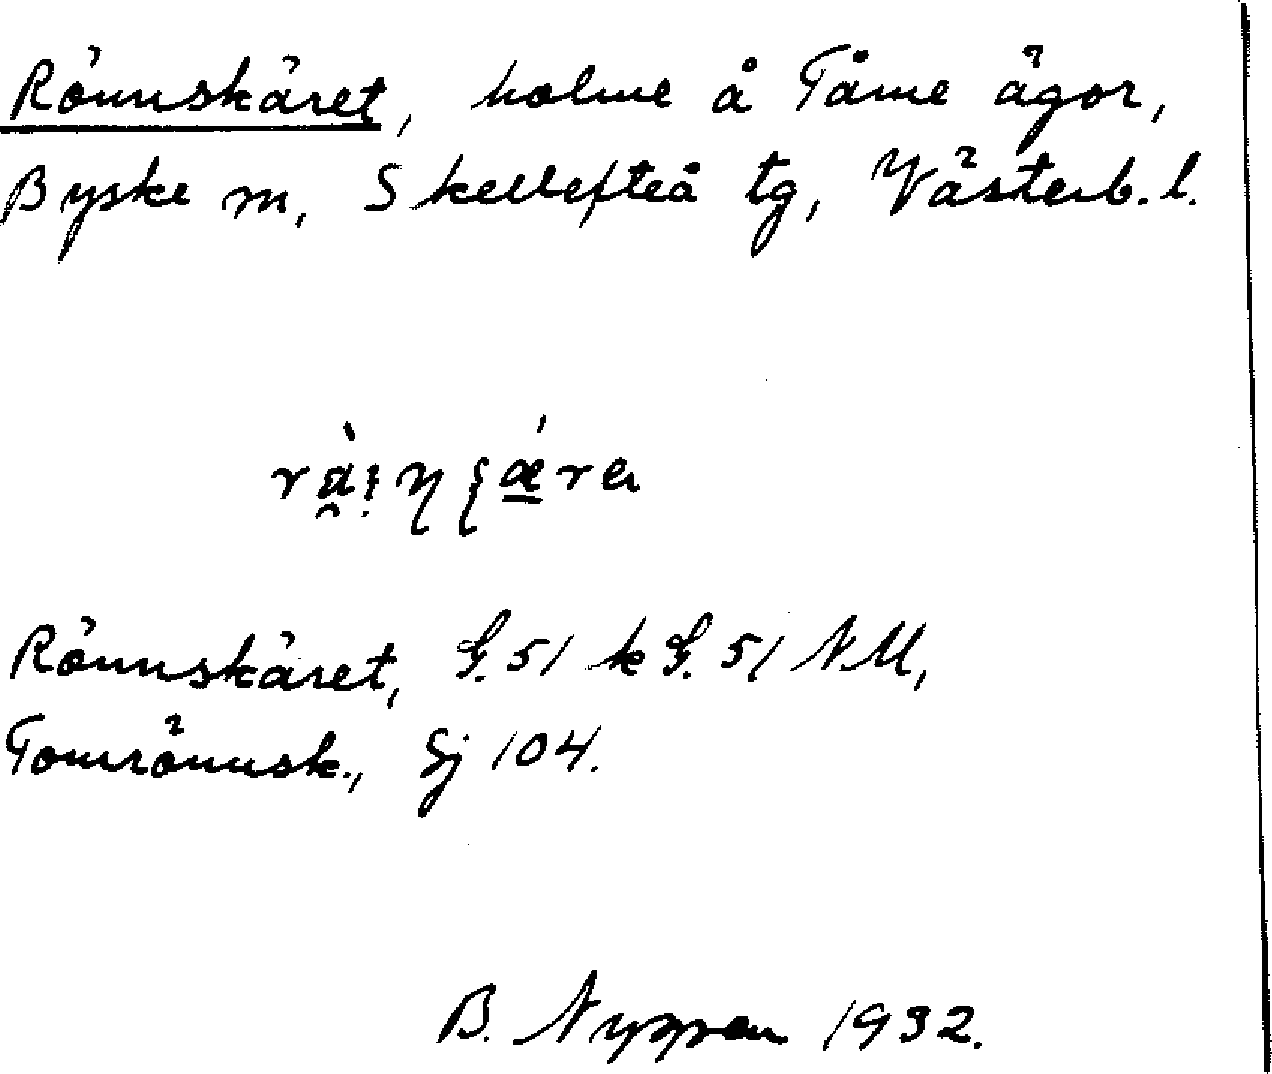 Rönnskäret, holme å Tåme ägor,
Byske sn, Skellefteå tg, Västerb. l.
Rönnskäret, G. 51 k G. 51 NM,
Tomrönnsk., Sj 104.
B. 1932.